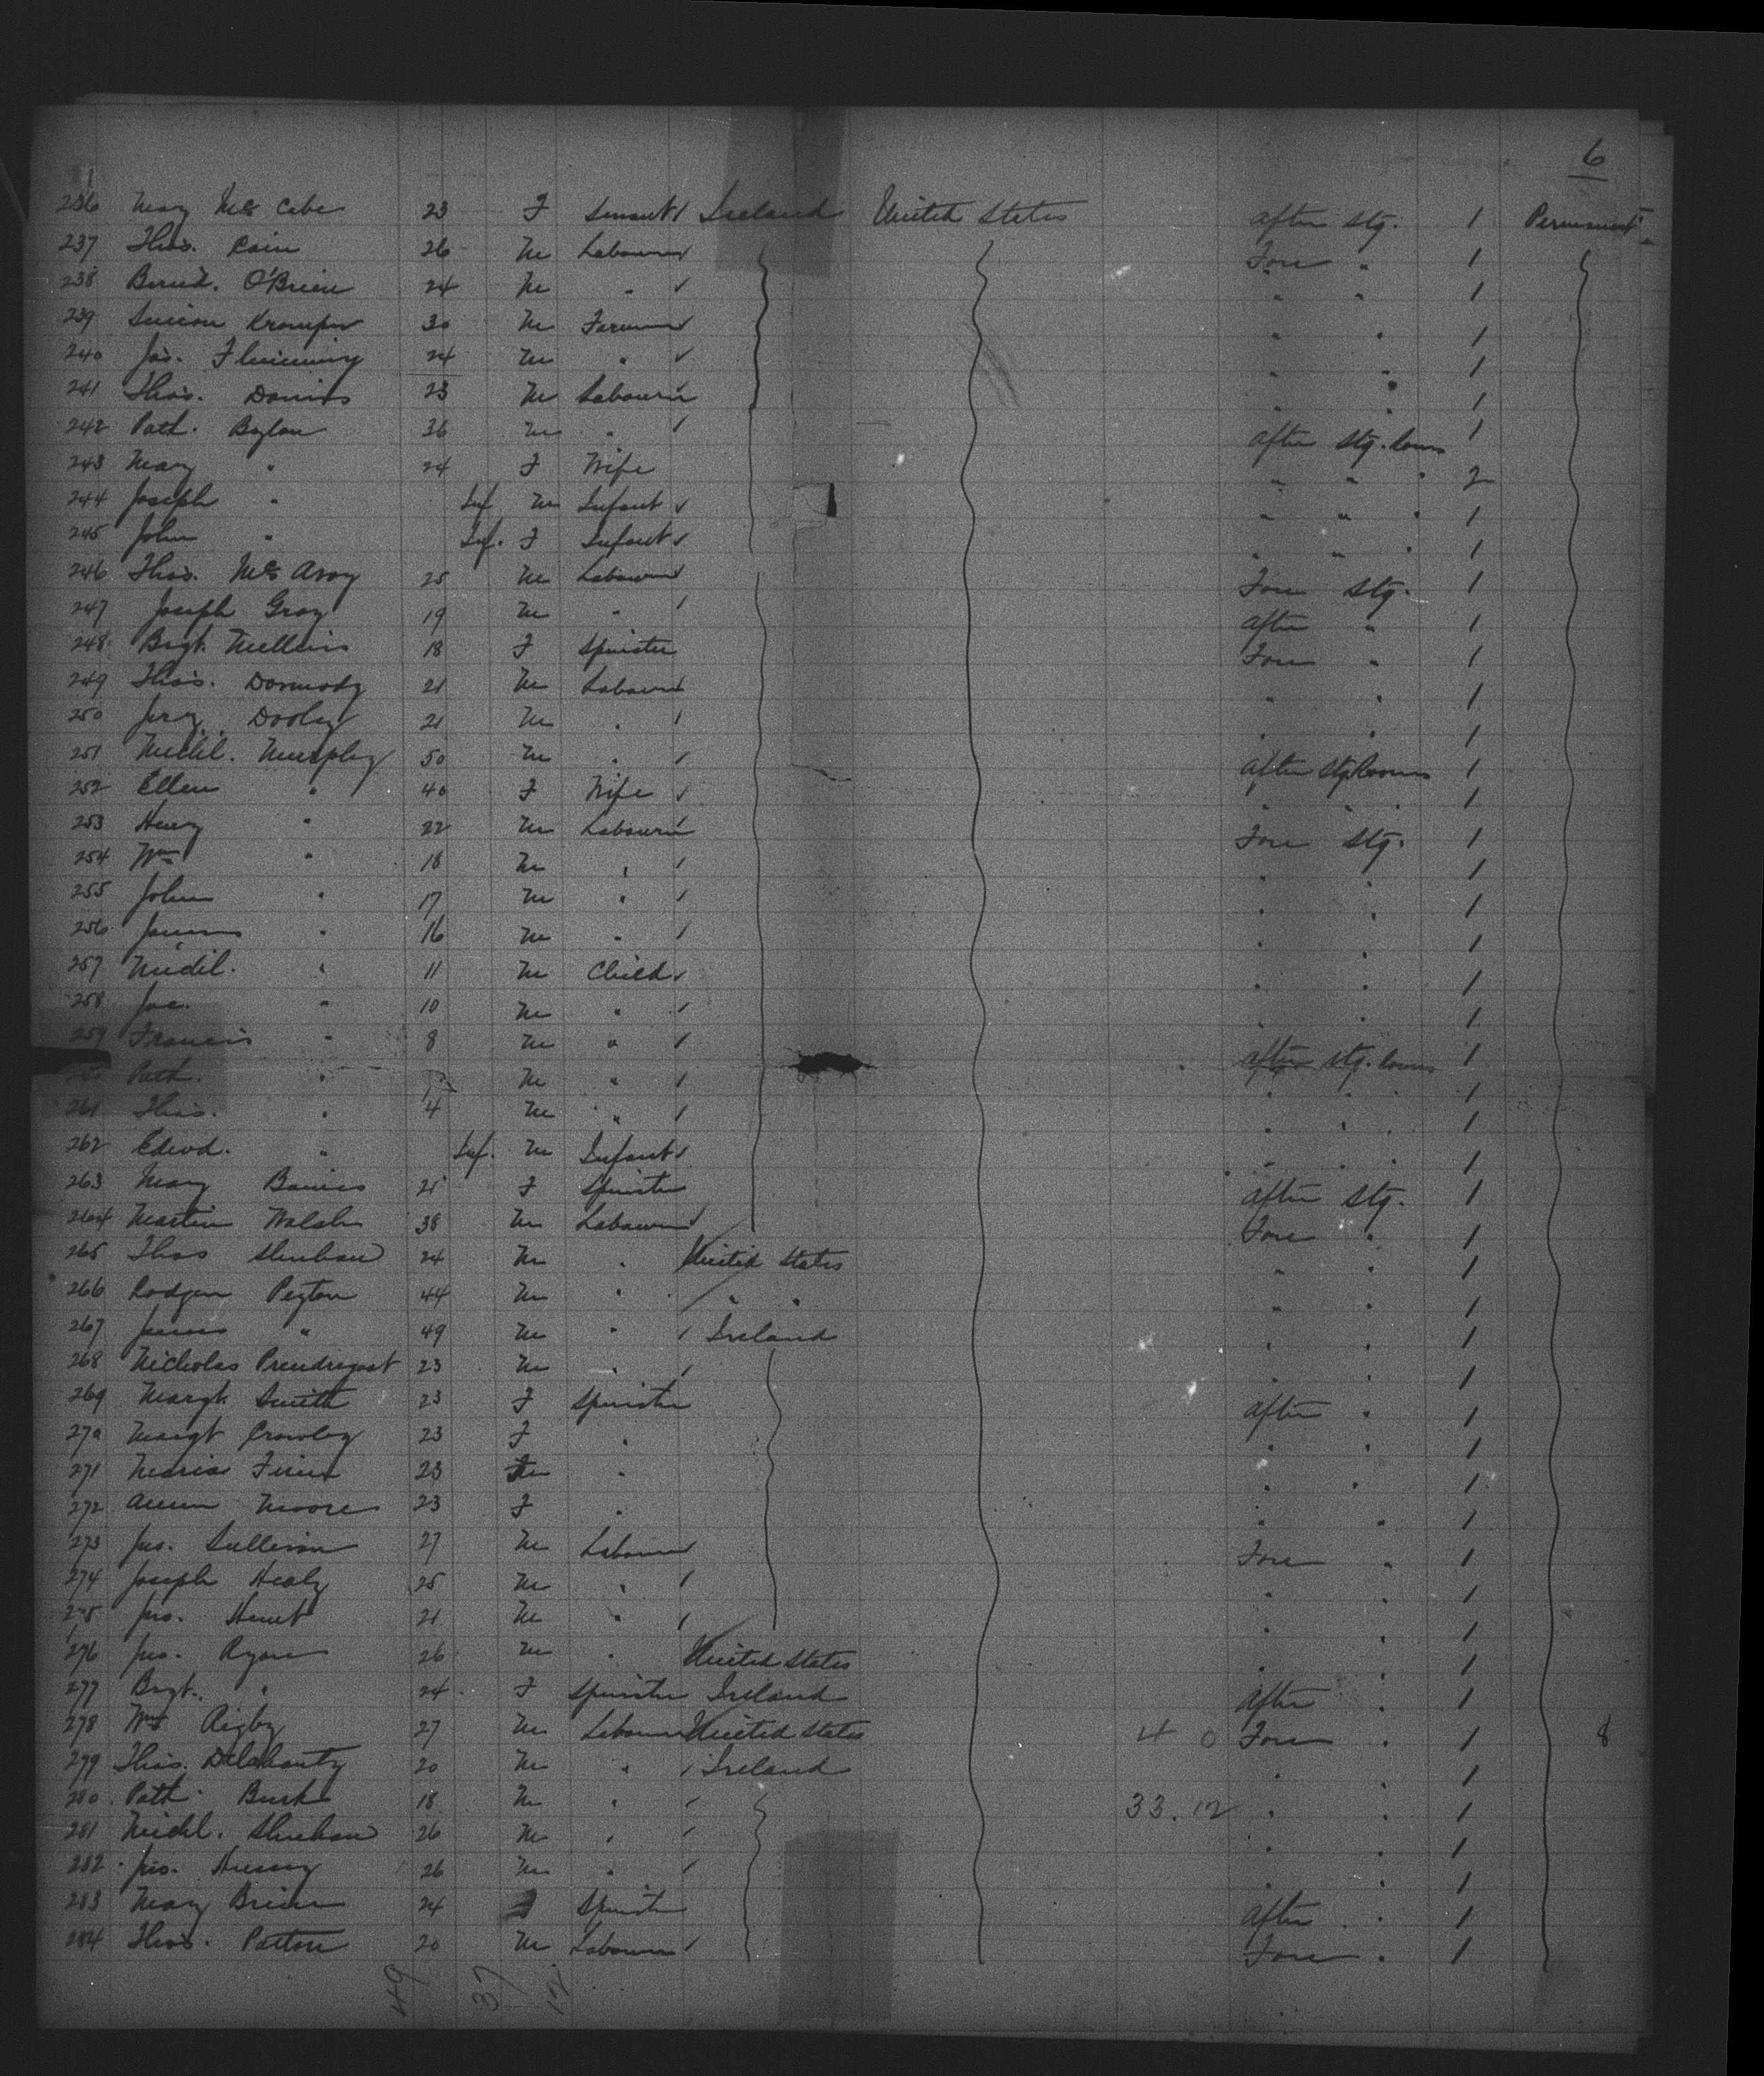 6
236 Mary McCabe 23 F Servant Ireland United States after Stg. 1 Permanent
237 Thos. Cain 26 M Labourer Fore " 1
238 Bernd. O'Brien 24 M " " " 1
239 Simon 30 M Farmer " " 1
240 Jas. Flemming 24 M " " " 1
241 Thos. 23 M Labourer " " 1
242 Patk. Boylan 36 M " after Stg. Rooms 1
243 Mary " 24 F Wife " " " 2
244 Joseph " Inf M Infant " " " 1
245 John " Inf. F Infant " " " 1
246 Thos. McAvoy 25 M Labourer Fore Stg. 1
247 Joseph Gray 19 M " after " 1
248 Brgt. Mullins 18 F Spinster Fore " 1
249 Thos. Dormody 21 M Labourer " " 1
250 Jery. Dooley 21 M " " " 1
251 Michl. Murphy 50 M " after Stg Rooms 1
252 Ellen " 40 F Wife " " " 1
253 Henry " 22 M Labourer Fore Stg. 1
254 Wm " 18 M " " " 1
255 John " 17 M " " " 1
256 James " 16 M " " " 1
257 Michl. " 11 M Child " " 1
258 Jas. " 10 M " " " 1
259 Francis " 8 M " after Stg. Rooms 1
Patk. " M " " " " 1
261 Thos. " 4 M " " " " 1
262 Edwd. " Inf. M Infant " " " 1
263 Mary 21 F Spinster after Stg. 1
264 Martin Walsh 38 M Labourer Fore " 1
265 Thos Sheehan 24 M " United States " " 1
266 Rodger Peyton 44 M " " " " " 1
267 James " 49 M " Ireland " " 1
268 Nicholas Prendregast 23 M " " " 1
269 Margt. Smith 23 F Spinster after " 1
270 Margt Crowley 23 F " " " 1
271 Maria Finn 23 F " " " 1
272 Moore 23 F " " " 1
273 Jno. Sullivan 27 M Labourer Fore " 1
274 Joseph Healy 25 M " " " 1
275 Jno. Hunt 21 M " " " 1
276 Jno. Ryan 26 M " United States " " 1
277 Brgt. " 24 F Spinster Ireland After " 1
278 Wm Rigby 27 M Labourer United States 4 0 Fore " 1 8
279 Thos. Delahanty 20 M " Ireland " " 1
280 Patk. Burk 18 M " 33.12 " " 1
281 Michl. Sheehan 26 M " " " 1
282 Jno. Hussey 26 M " " " 1
283 Mary Brien 24 Spinster After " 1
284 Thos. Patton 20 M Labourer Fore " 1
49 37 12